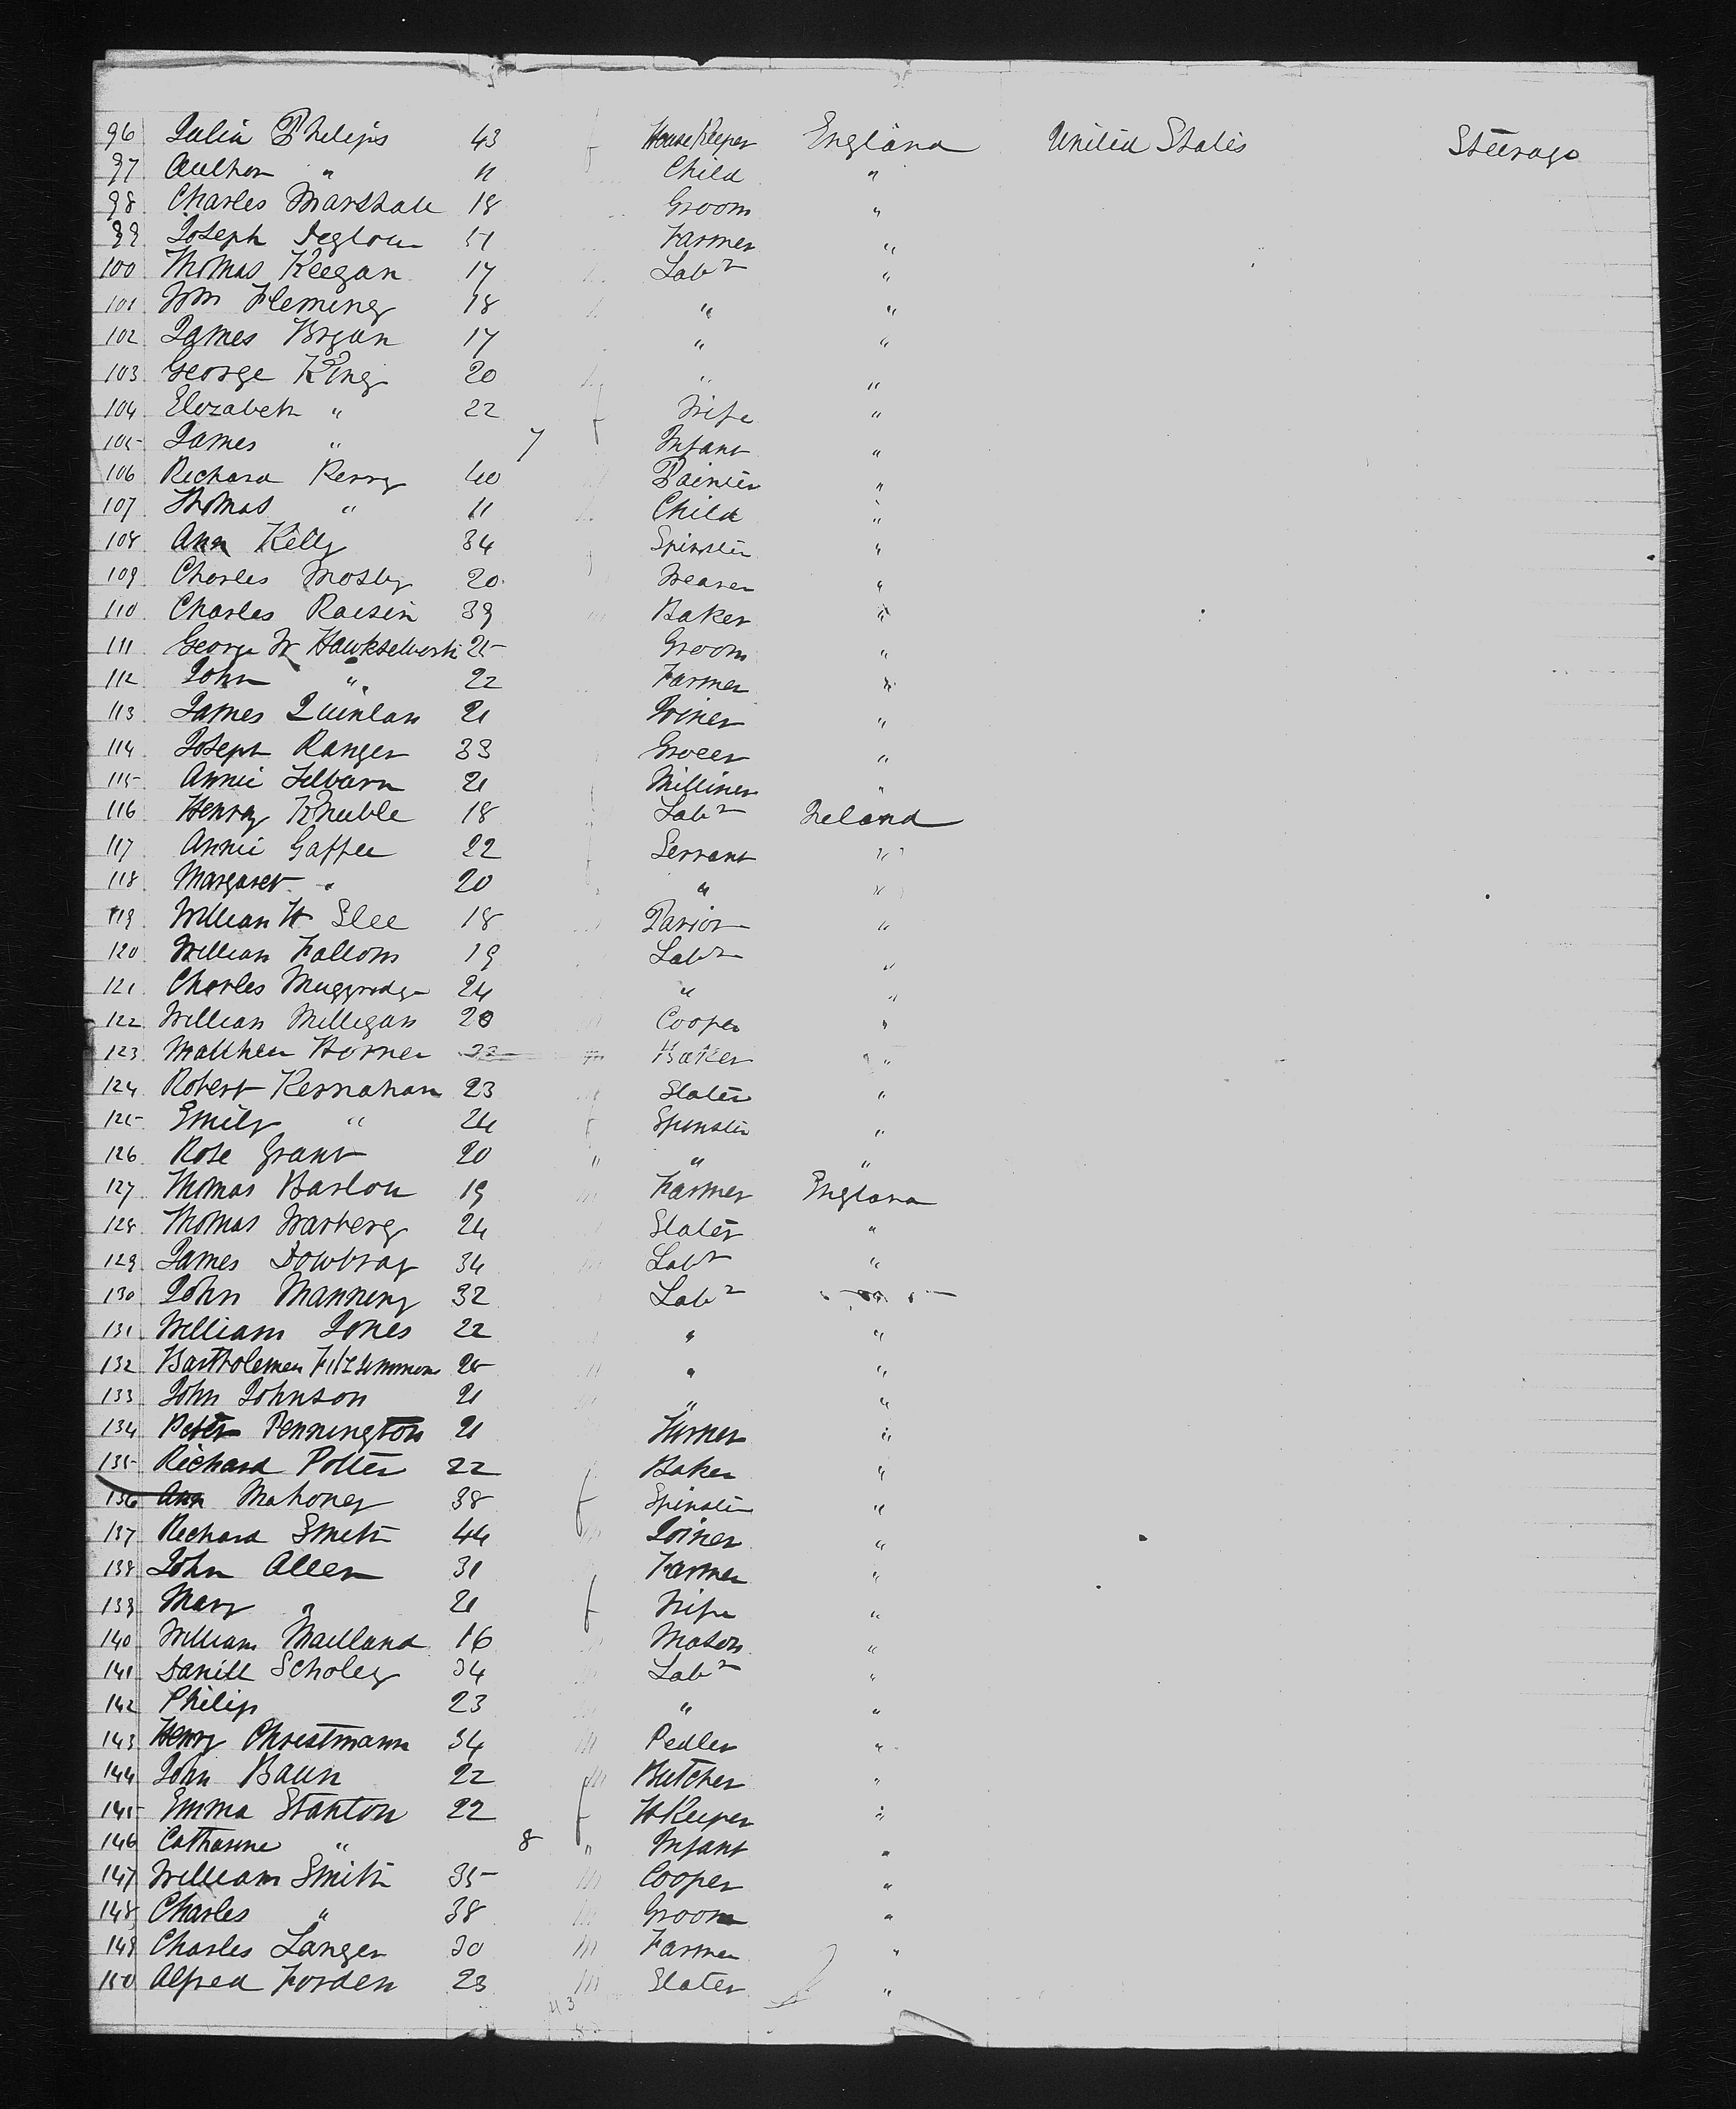 96 Julia Phelips 43 f House Keeper England United States Steerage
97 " 11 Child "
98 Charles Marshall 18 Groom "
99 Joseph 51 Farmer "
100 Thomas Keegan 17 Labr "
101 Wm Fleming 18 " "
102 James Bryan 17 " "
103 George King 20 " "
104 Elizabeth " 22 f Wife "
105 James " 7 Infant "
106 Richard Perry 40 Painter "
107 Thomas " 11 Child "
108 Ann Kelly 34 Spinster "
109 Charles Mosley 20 Weaver "
110 Charles Raisin 39 Baker "
111 George W Hawkselworth 25 Groom "
112 John " 22 Farmer "
113 James Quinlan 21 Joiner "
114 Joseph Ranger 33 Grocer "
115 Annie 21 Milliner "
116 Henry Khuble 18 Labr Ireland
117 Annie Gaffee 22 f Servant "
118 Margaret " 20 " "
119 William H Slee 18 "
120 William Fallons 19 Labr "
121 Charles Muggridge 24 " "
122 William Milligan 20 m Cooper "
123 Matthew Horner 22 m Baker "
124 Robert Kernahan 23 m Slater "
125 Emily " 24 f Spinster "
126 Rose Grant 20 " " "
127 Thomas Barlow 19 m Farmer England
128 Thomas Warberg 24 Slater "
129 James Dowbray 34 m Labr "
130 John Manning 32 Labr "
131 William Jones 22 " "
132 Bartholemew Fitzsimmons 25 m " "
133 John Johnson 21 " "
134 Peter Pennington 21 Turner "
135 Richard Potter 22 Baker "
136 Ann Mahoney 38 f Spinster "
137 Richard Smith 44 m Joiner "
138 John Allen 31 Farmer "
139 Mary " 21 f Wife "
140 William Mailland 16 Mason "
141 Daniel Scholey 34 m Labr "
142 Philip 23 " "
143 Henry Christmann 34 m Pedler "
144 John Baun 22 m Butcher "
145 Emma Stanton 22 f HKeeper "
146 Catharine " 8 " Infant "
147 William Smith 35 m Cooper "
148 Charles " 38 m Groom "
149 Charles Langer 30 m Farmer "
150 Alfred Forden 23 m Slater "